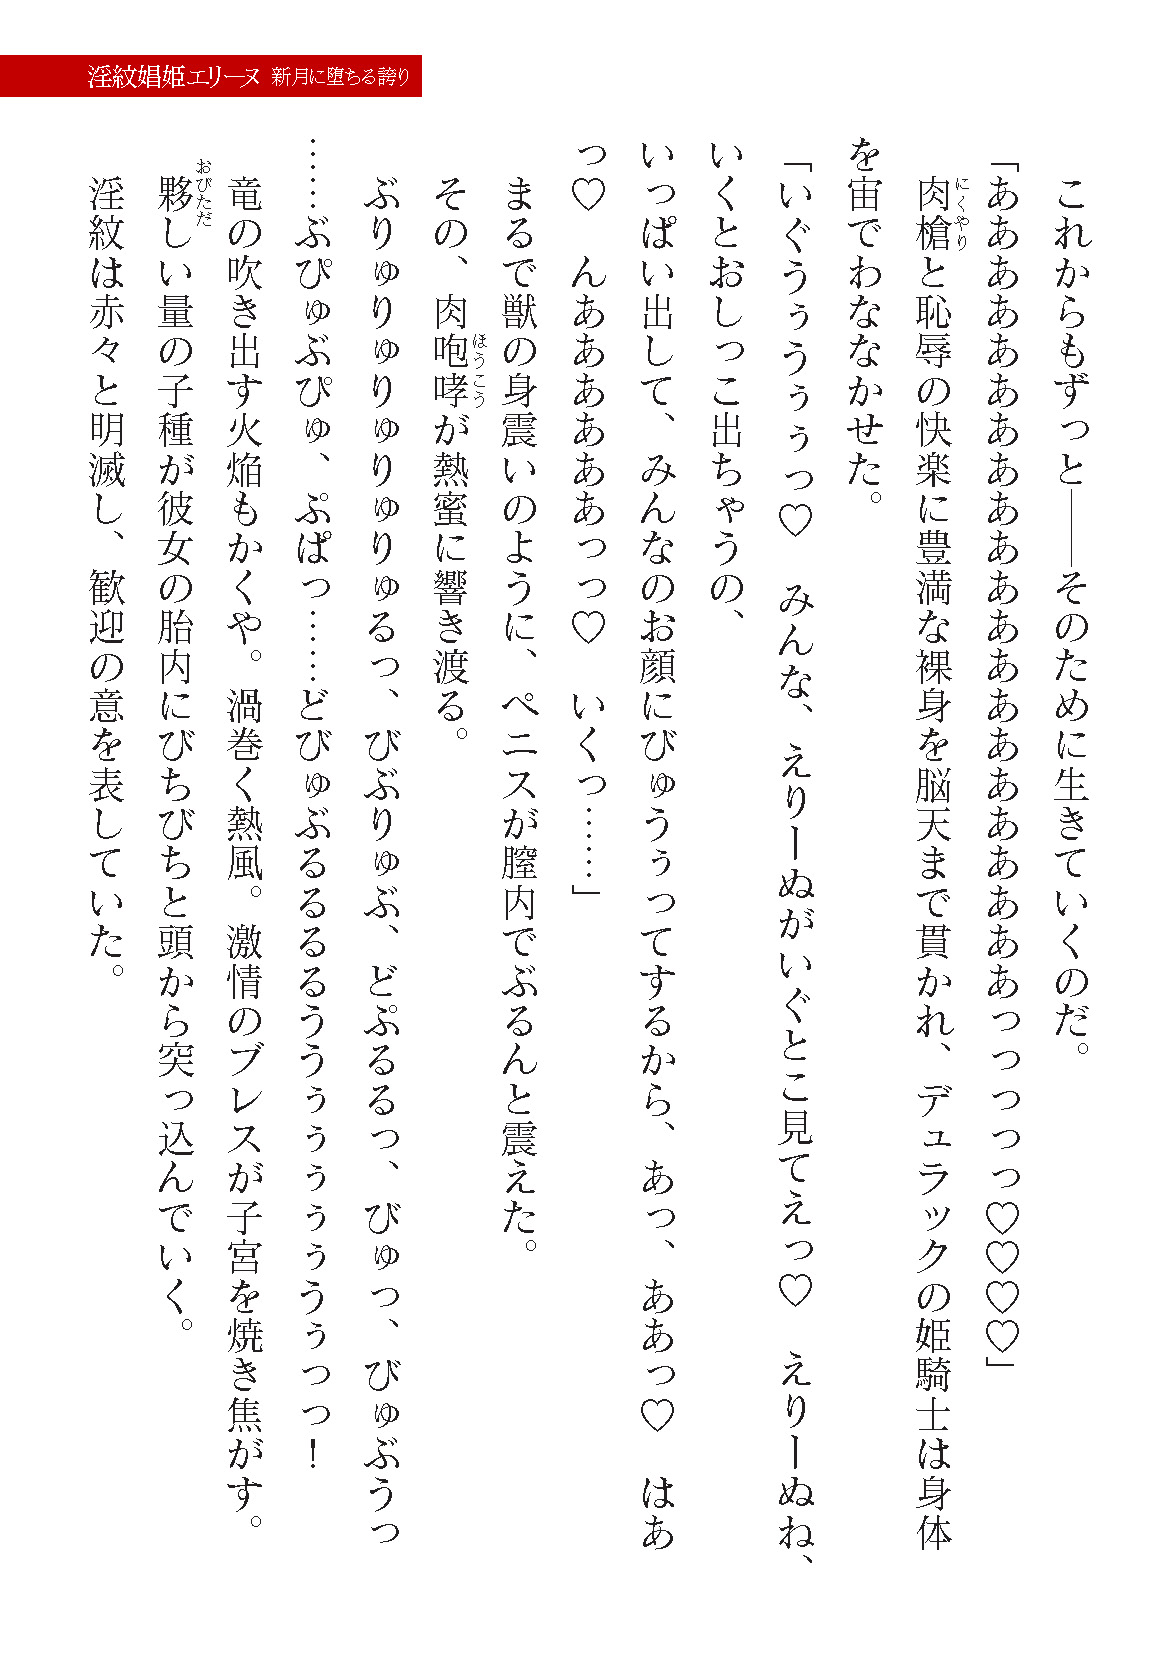 淫紋娼姫エリーヌ 新月に堕ちる誇り
これからもずっと――そのために生きていくのだ。
「あああああああああああああああああああああっっっっっ♡♡♡♡」
肉槍と恥辱の快楽に豊満な裸身を脳天まで貫かれ、デュラックの姫騎士は身体
にくやり
を宙でわななかせた。
「いぐうぅうぅぅっ♡　みんな、えりーぬがいぐとこ見てえっ♡　えりーぬね、
いくとおしっこ出ちゃうの、
いっぱい出して、みんなのお顔にびゅうぅってするから、あっ、ああっ♡　はあ
っ♡　んああああああっっ♡　いくっ……」
まるで獣の身震いのように、ペニスが膣内でぶるんと震えた。
その、肉咆哮が熱蜜に響き渡る。
ほうこう
ぶりゅりゅりゅりゅりゅるっ、びぶりゅぶ、どぷるるっ、びゅっ、びゅぶうっ
……ぶぴゅぶぴゅ、ぷぱっ……どびゅぶるるるるううぅぅぅぅぅうぅっっ！
竜の吹き出す火焔もかくや。渦巻く熱風。激情のブレスが子宮を焼き焦がす。
夥しい量の子種が彼女の胎内にびちびちと頭から突っ込んでいく。
おびただ
淫紋は赤々と明滅し、歓迎の意を表していた。